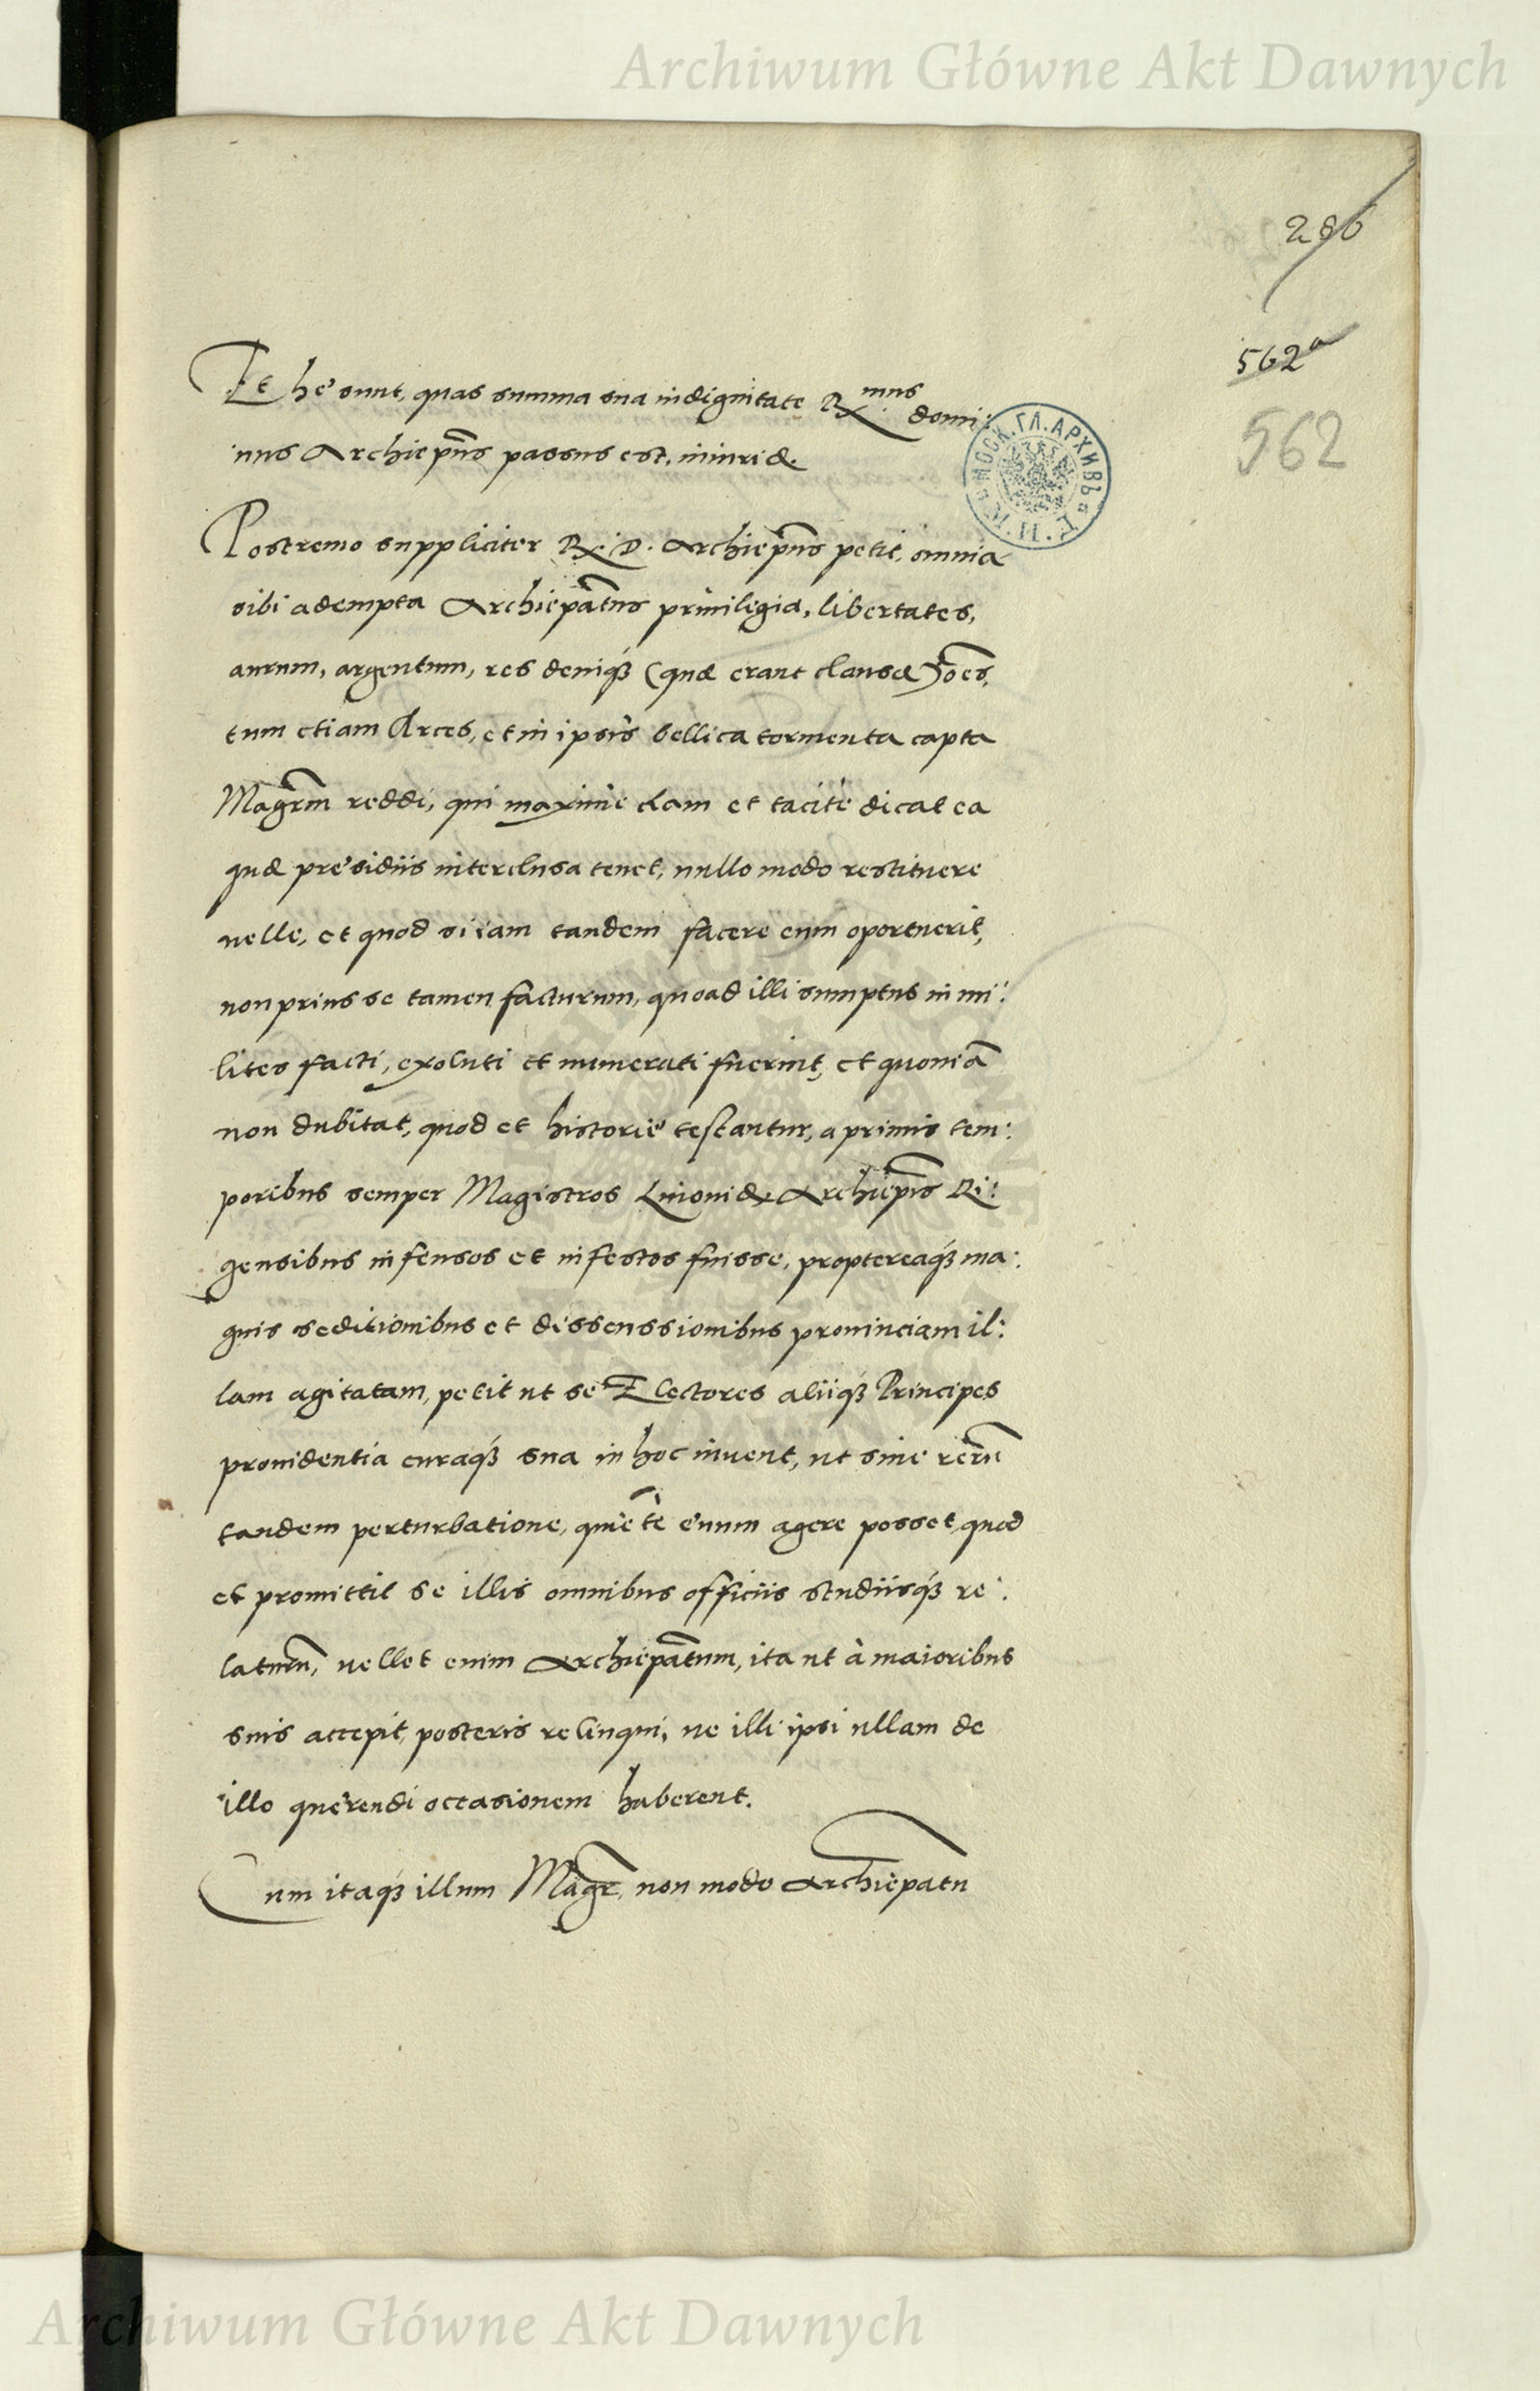 Archiwum Główne Akt Dawnych
286
562a
562
Et he sunt, quas summa sua indignitate Rx.mus domi:
nus Archiepũs passus est, iniuriæ.
МОСК. ГЛ. АРХИВЪ
Postremo suppliciter Rx. D. Archiepũs petit, omnia
sibi adempta Archiepãtus priuilegia, libertates,
aurum, argentum, res deniq3 (quæ erant clausæ) oẽs,
tum etiam Arces, et in ipsis bellica tormenta capta
Magr̃m reddi, qui maximè clam et tacitè dicat ea
quæ presidiis interclusa tenet, nullo modo restituere
uelle, et quod si iam tandem facere eum oportuerit,
non prius se tamen facturum, quoad illi sumptus in mi:
lites facti, exoluti et numerati fuerint, et quoniã
non dubitat, quod et historie testantur, a primis tem:
poribus semper Magistros Liuoniæ Archiep̃is Ri:
gensibus infensos et infestos fuisse, proptereaq3 ma:
gnis seditionibus et dissenssionibus prouinciam il:
lam agitatam, petit ut se Electores aliiq3 Principes
prouidentia curaq3 sua in hoc iuuent, ut sine rerũ
tandem perturbatione, quietè euum agere posset, quod
et promittit se illis omnibus officiis studiisq3 re:
laturũ, uellet enim Archiepãtum, ita ut à maioribus
suis accepit, posteris relinqui, ne illi ipsi ullam de
illo querendi occasionem haberent.
Cum itaq3 illum Magr̃, non modo Archiepatu
Archiwum Główne Akt Dawnych